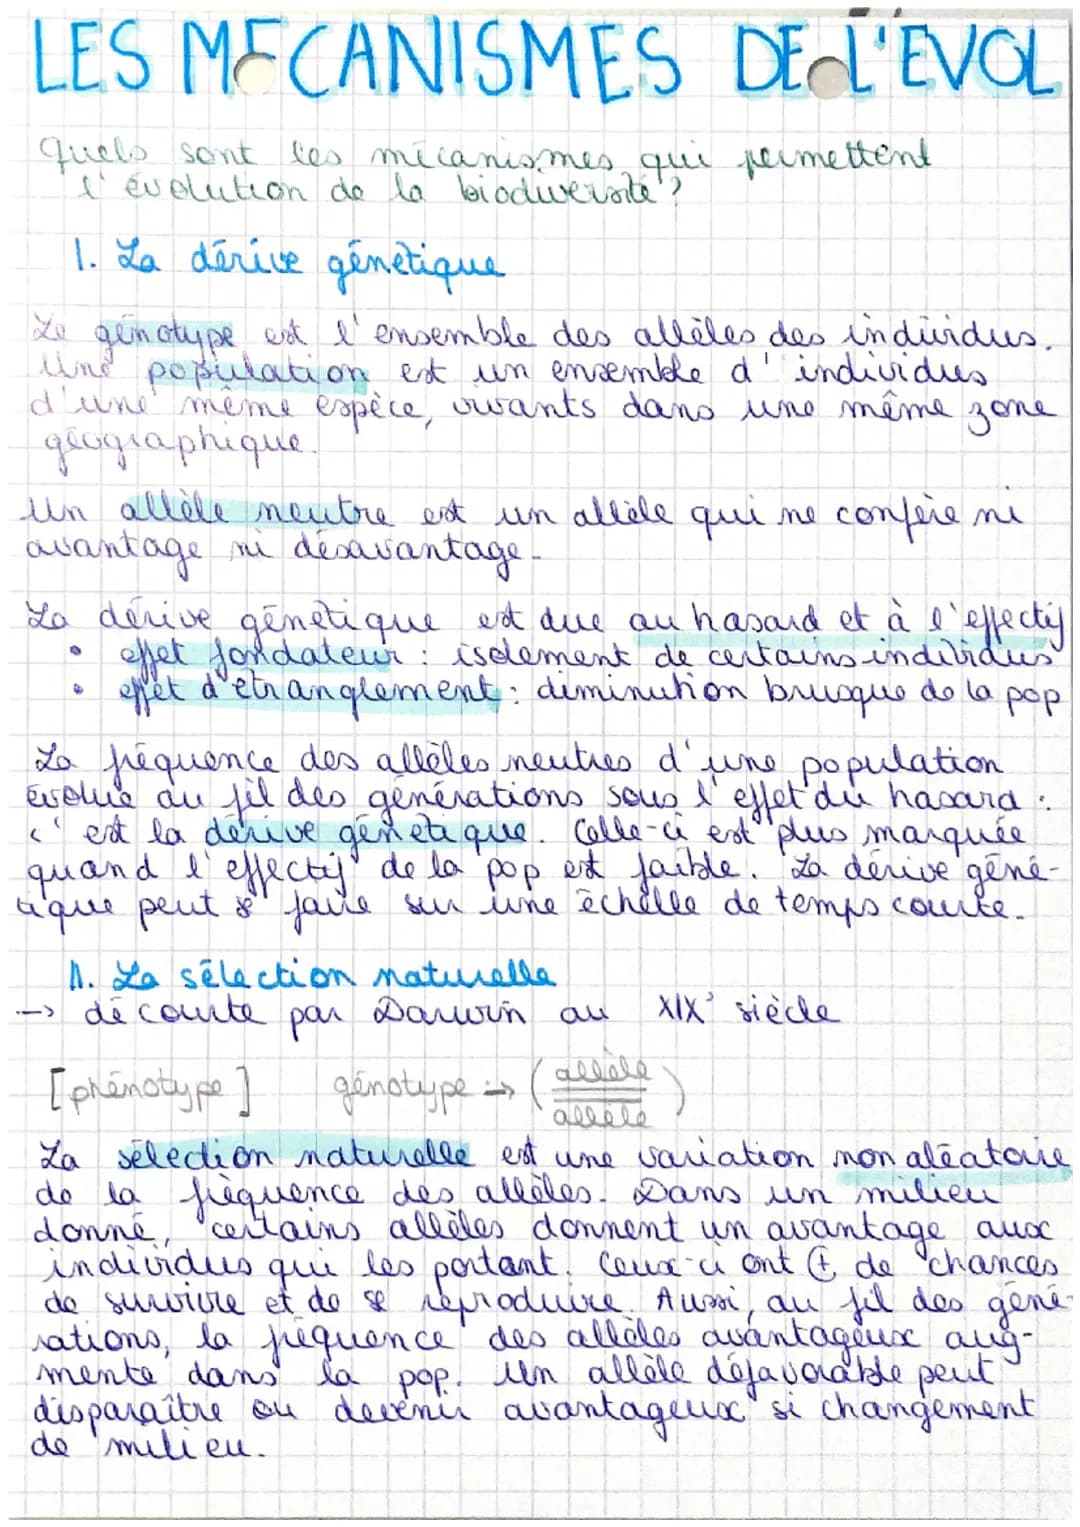 LES MECANISMES DE L'EVOL
Quels sont les mécanismes qui permettent
l'évolution de la biodiversité ?
I. La dérive génétique
Le génotype est l'ensemble des allèles des individus.
Une population est un ensemble d'individus
d'une même espèce, vivants dans une même zone
géographique.
Un allèle neutre est un allèle qui ne confère ni
avantage ni désavantage.
La dérive génétique est due au hasard et à l'effectif
• effet fondateur : isolement de certains individus
• effet d'étranglement : diminution brusque de la pop
La fréquence des allèles neutres d'une population
évolue au fil des générations sous l'effet du hasard :
c'est la dérive génétique. Celle-ci est plus marquée
quand l'effectif de la pop est faible. La dérive géné-
tique peut s' faire sur une échelle de temps courte.
II. La sélection naturelle
--> découverte par Darwin au XIXe siècle
[phénotype] génotype :-> (allèle
allèle)
La sélection naturelle est une variation non aléatoire
de la fréquence des allèles. Dans un milieu
donné, certains allèles donnent un avantage aux
individus qui les portent. Ceux-ci ont ⊕ de chances
de survivre et de se reproduire. Aussi, au fil des géné-
rations, la fréquence des allèles avantageux aug-
mente dans la pop. Un allèle défavorable peut
disparaître ou devenir avantageux si changement
de milieu.